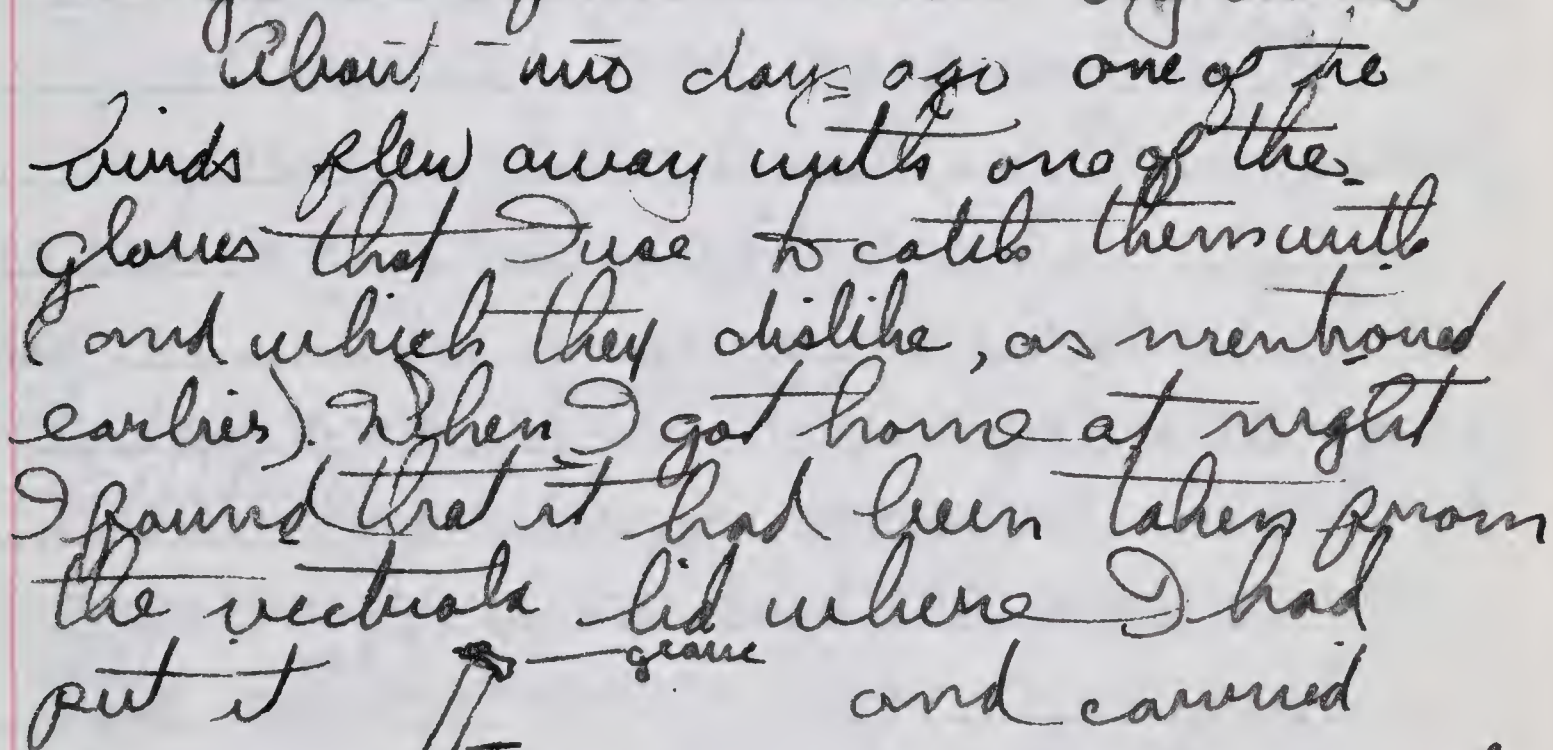 About two days ago one of the
birds flew away with one of the
gloves that I use to catch them with
(and which they dislike, as mentioned
earlier). When I got home at night
I found that it had been taken from
the victrola lid where I had
put it glove and carried